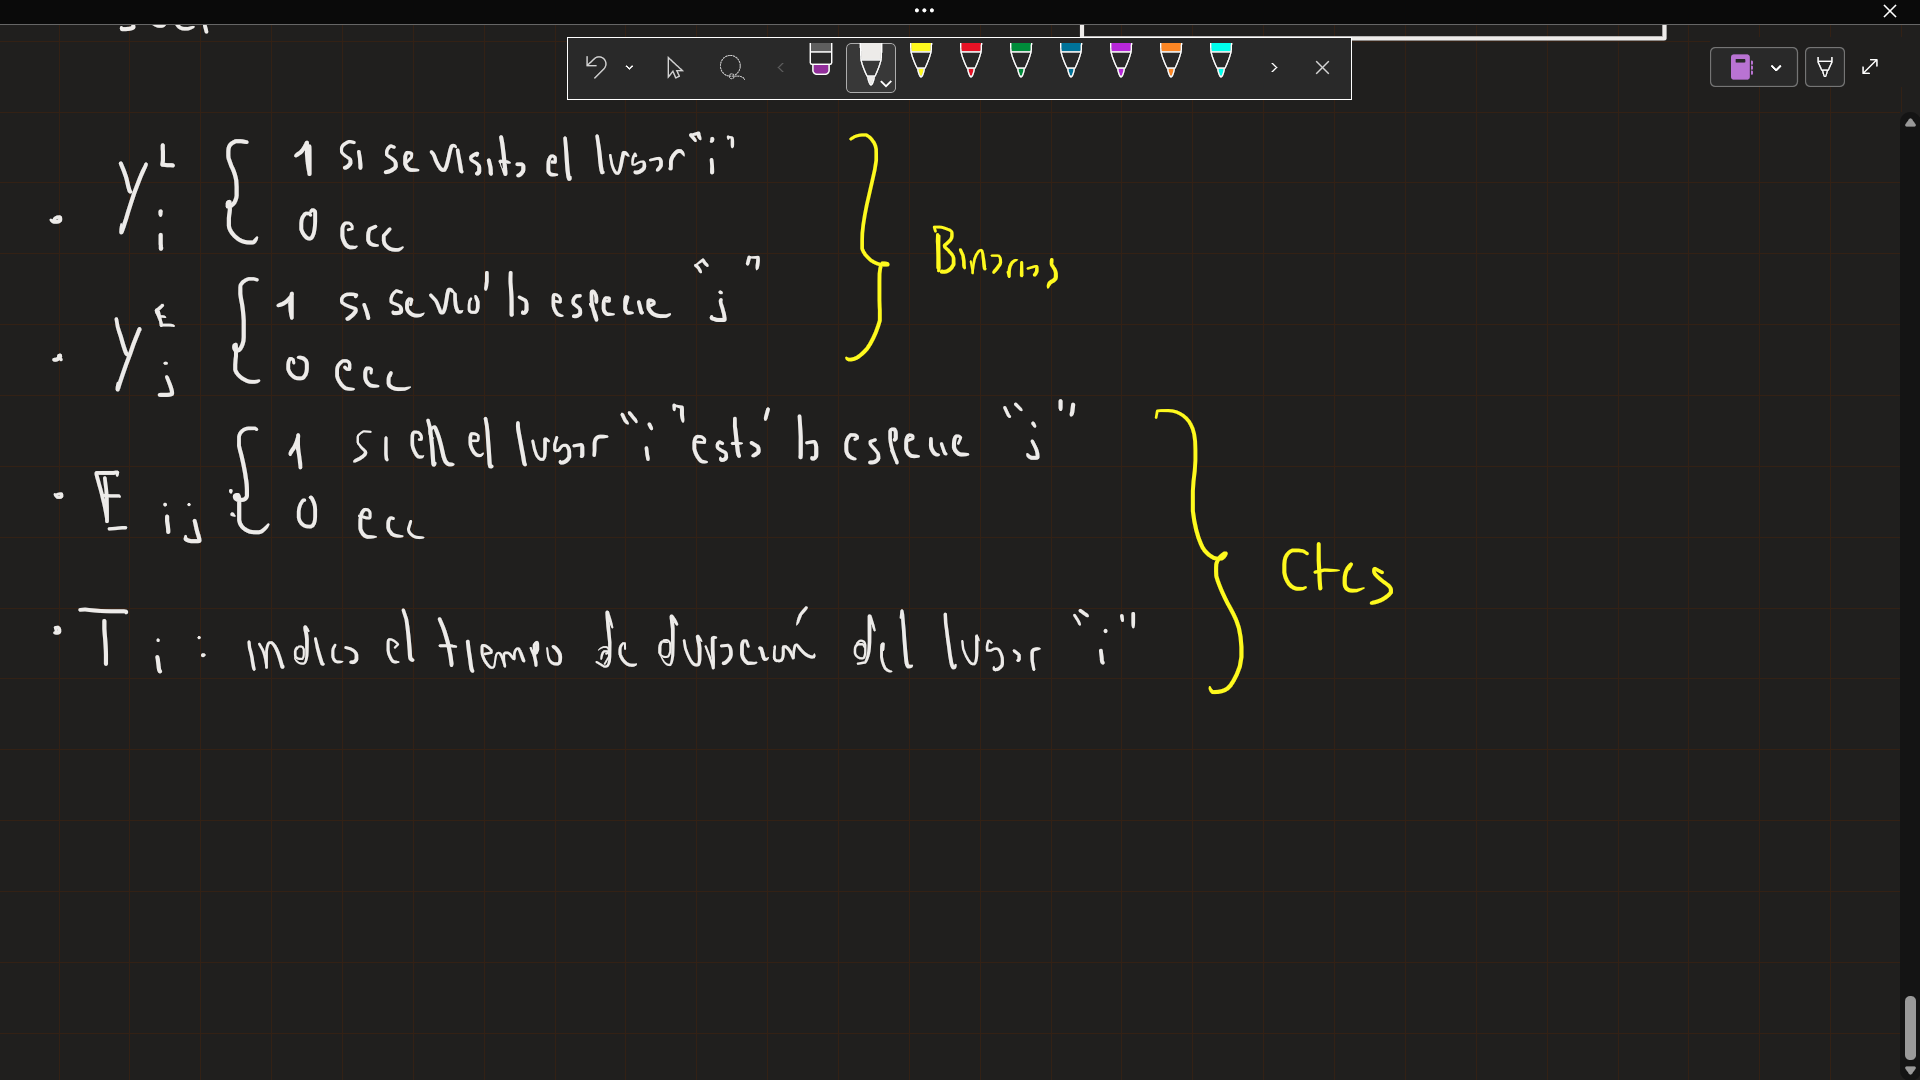 Y_i^L { 1 si se visita el lugar "i"
0 ecc
Binarias
Y_j^E { 1 si se vió la especie "j"
0 ecc
E_ij : { 1 si en el lugar "i" está la especie "j"
0 ecc
Ctes
T_i : indica el tiempo de duración del lugar "i"